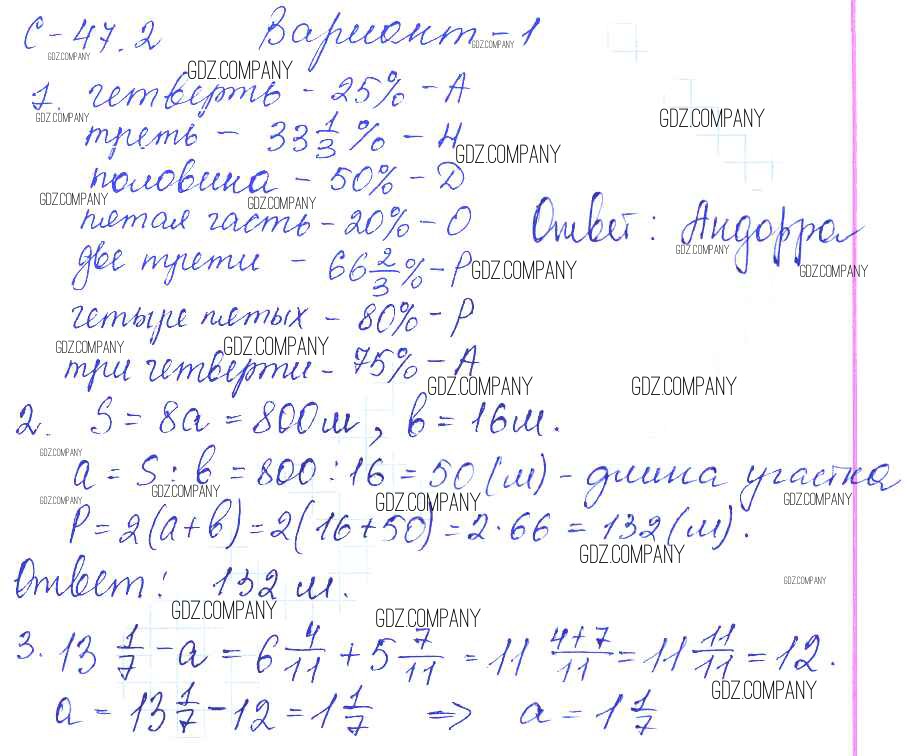 С-47.2 Вариант-1
GDZ.COMPANY GDZ.COMPANY
GDZ.COMPANY
1. четверть - 25% - А
GDZ.COMPANY GDZ.COMPANY
треть - 33 1/3 % - Н
GDZ.COMPANY
половина - 50% - D
GDZ.COMPANY GDZ.COMPANY
пятая часть - 20% - О
Ответ: Андорра
GDZ.COMPANY
две трети - 66 2/3 % - Р
GDZ.COMPANY GDZ.COMPANY
четыре пятых - 80% - Р
GDZ.COMPANY GDZ.COMPANY
три четверти - 75% - А
GDZ.COMPANY GDZ.COMPANY
2. S = 8а = 800м, в = 16м.
GDZ.COMPANY
а = S : в = 800 : 16 = 50 (м) - длина участка
GDZ.COMPANY GDZ.COMPANY GDZ.COMPANY GDZ.COMPANY
Р = 2(а+в) = 2(16+50) = 2·66 = 132 (м).
GDZ.COMPANY
Ответ: 132 м.
GDZ.COMPANY
GDZ.COMPANY GDZ.COMPANY
3. 13 1/7 - а = 6 4/11 + 5 7/11 = 11 4+7/11 = 11 11/11 = 12.
GDZ.COMPANY
а = 13 1/7 - 12 = 1 1/7 => а = 1 1/7